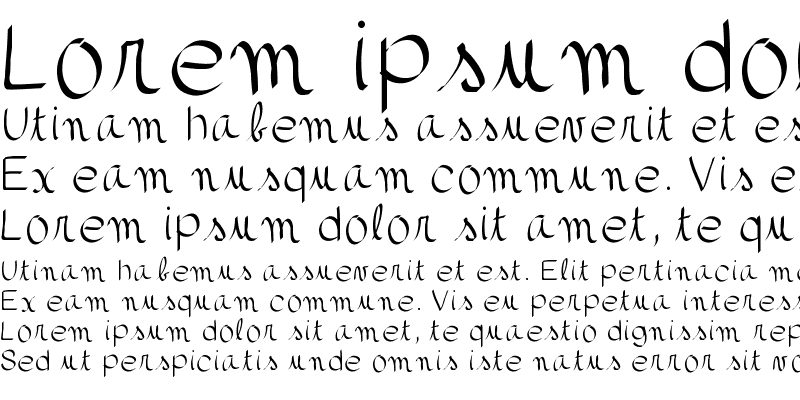 Lorem ipsum dol
Utinam habemus assueverit et es
Ex eam nusquam commune. Vis e
Lorem ipsum dolor sit amet, te qu
Utinam habemus assueverit et est. Elit pertinacia m
Ex eam nusquam commune. Vis eu perpetua interess
Lorem ipsum dolor sit amet, te quaestio dignissim rep
Sed ut perspiciatis unde omnis iste natus error sit vo